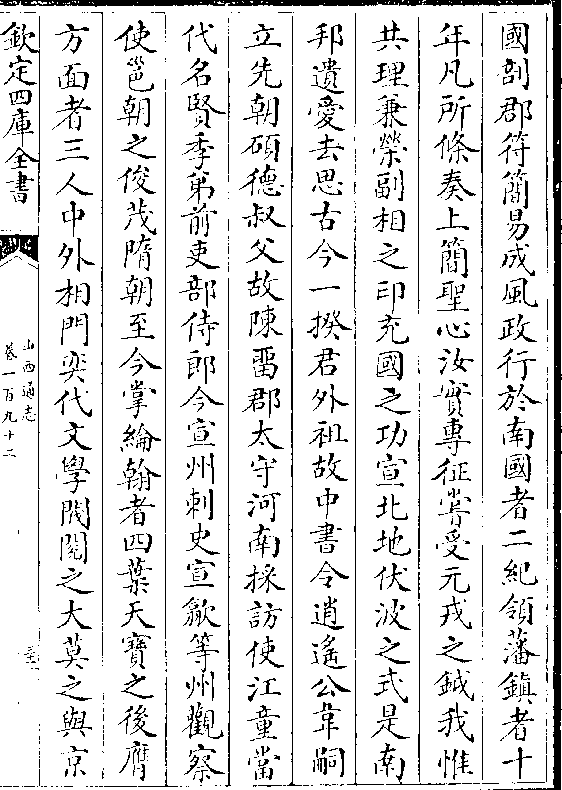 國剖郡符簡易成風政行於南國者二紀領藩鎮者十
年凡所條奏上簡聖心汝實專征嘗受元戎之鉞我惟
共理兼榮副相之印充國之功宣北地伏波之式是南
邦遺愛去思古今一揆君外祖故中書令逍遙公韋嗣
立先朝碩德叔父故陳留郡太守河南採訪使江童當
代名賢季第前吏部侍郎今宣州刺史宣歙等州觀察
使邕朝之俊茂隋朝至今掌綸翰者四葉天寶之後膺
方面者三人中外相門奕代文學閥閱之大莫之與京
欽定四庫全書
山西通志
卷一百九十二